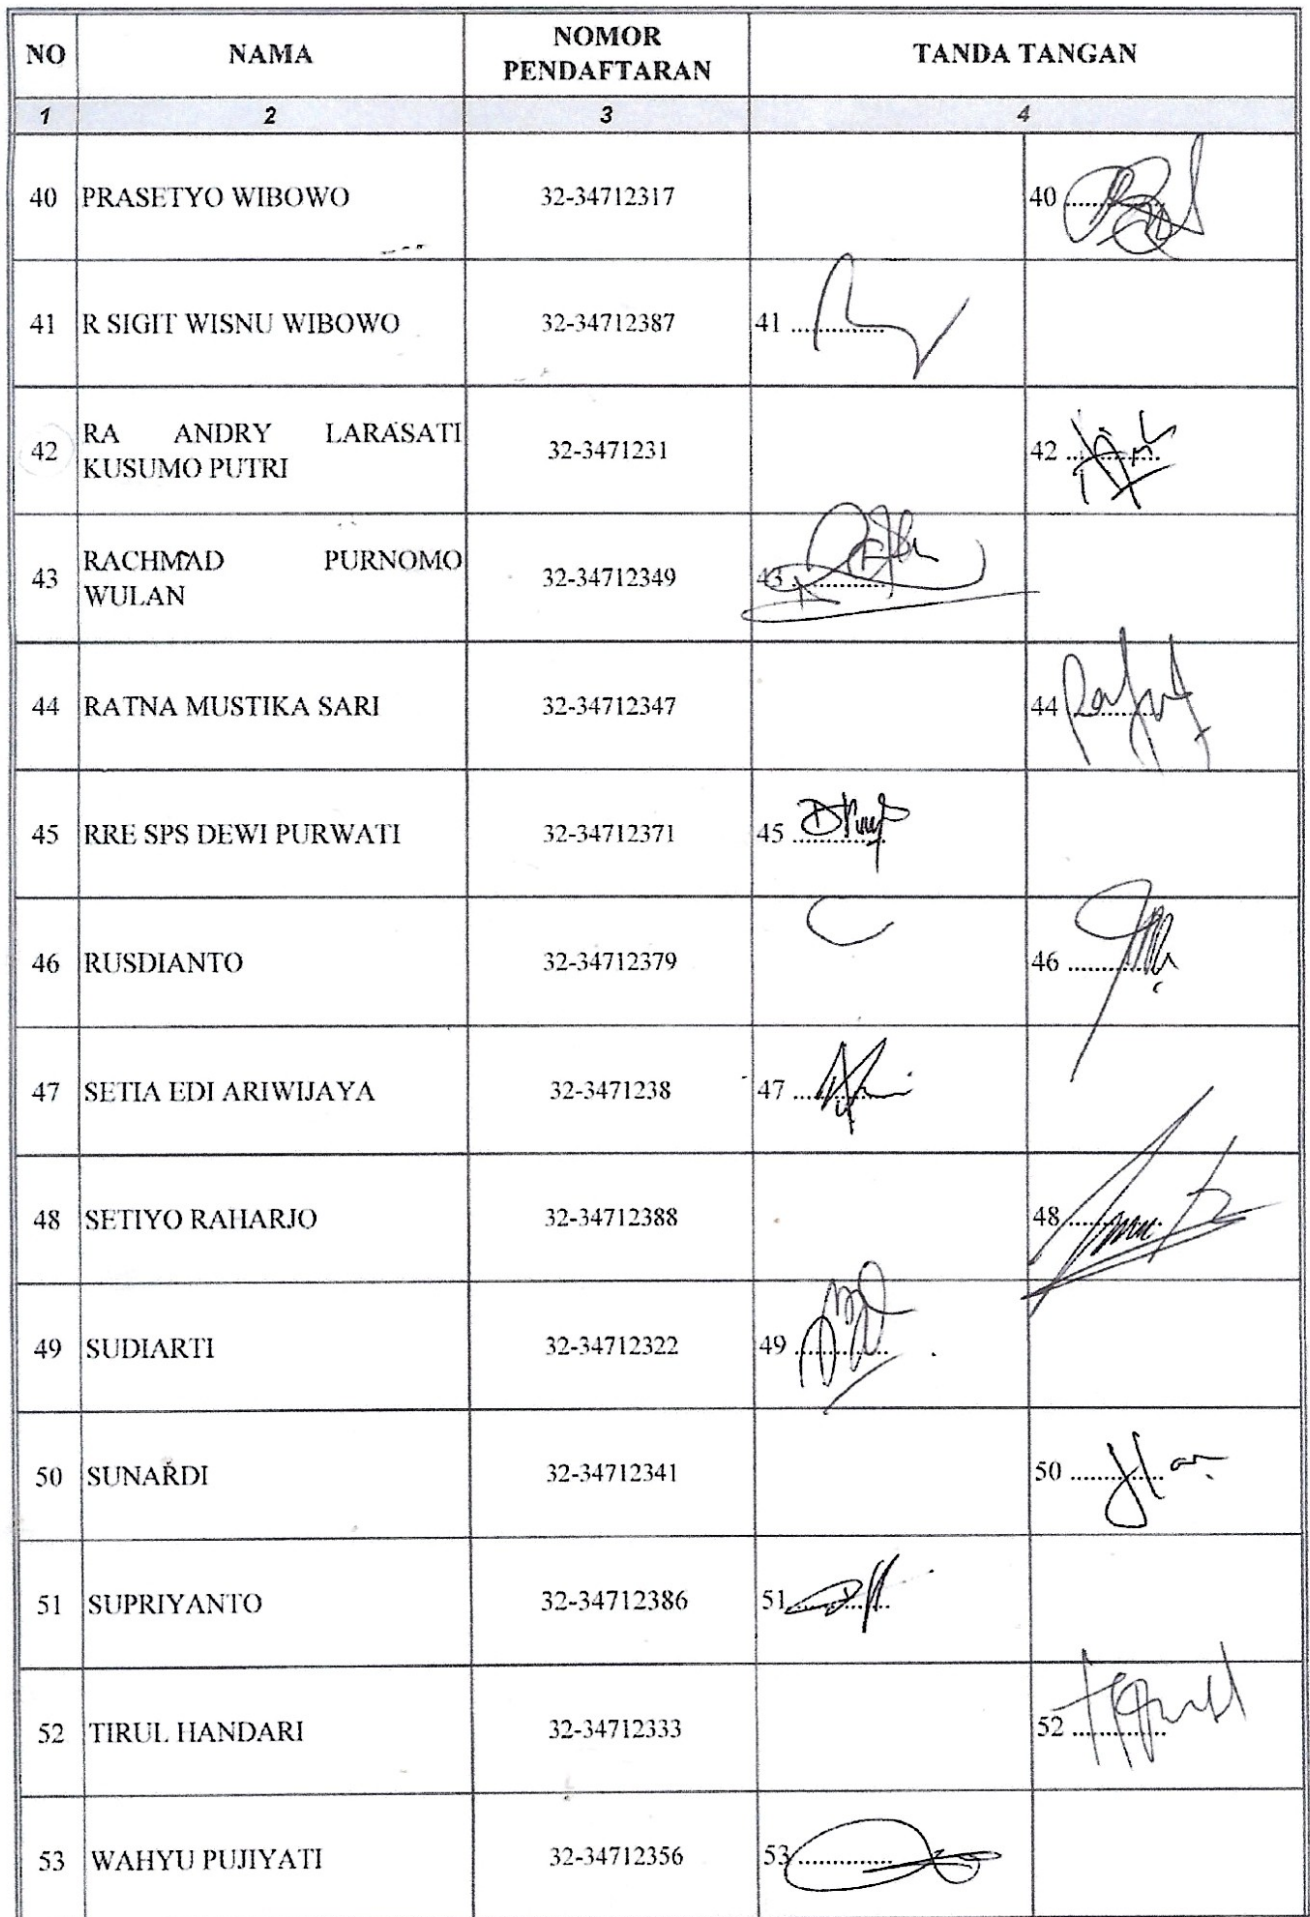 NO NAMA NOMOR PENDAFTARAN TANDA TANGAN
1 2 3 4
40 PRASETYO WIBOWO 32-34712317 40 ..............
41 R SIGIT WISNU WIBOWO 32-34712387 41 ..............
42 RA ANDRY LARASATI
KUSUMO PUTRI 32-3471231 42 ..............
43 RACHMAD PURNOMO
WULAN 32-34712349 43 ..............
44 RATNA MUSTIKA SARI 32-34712347 44 ..............
45 RRE SPS DEWI PURWATI 32-34712371 45 ..............
46 RUSDIANTO 32-34712379 46 ..............
47 SETIA EDI ARIWIJAYA 32-3471238 47 ..............
48 SETIYO RAHARJO 32-34712388 48 ..............
49 SUDIARTI 32-34712322 49 ..............
50 SUNARDI 32-34712341 50 ..............
51 SUPRIYANTO 32-34712386 51 ..............
52 TIRUL HANDARI 32-34712333 52 ..............
53 WAHYU PUJIYATI 32-34712356 53 ..............